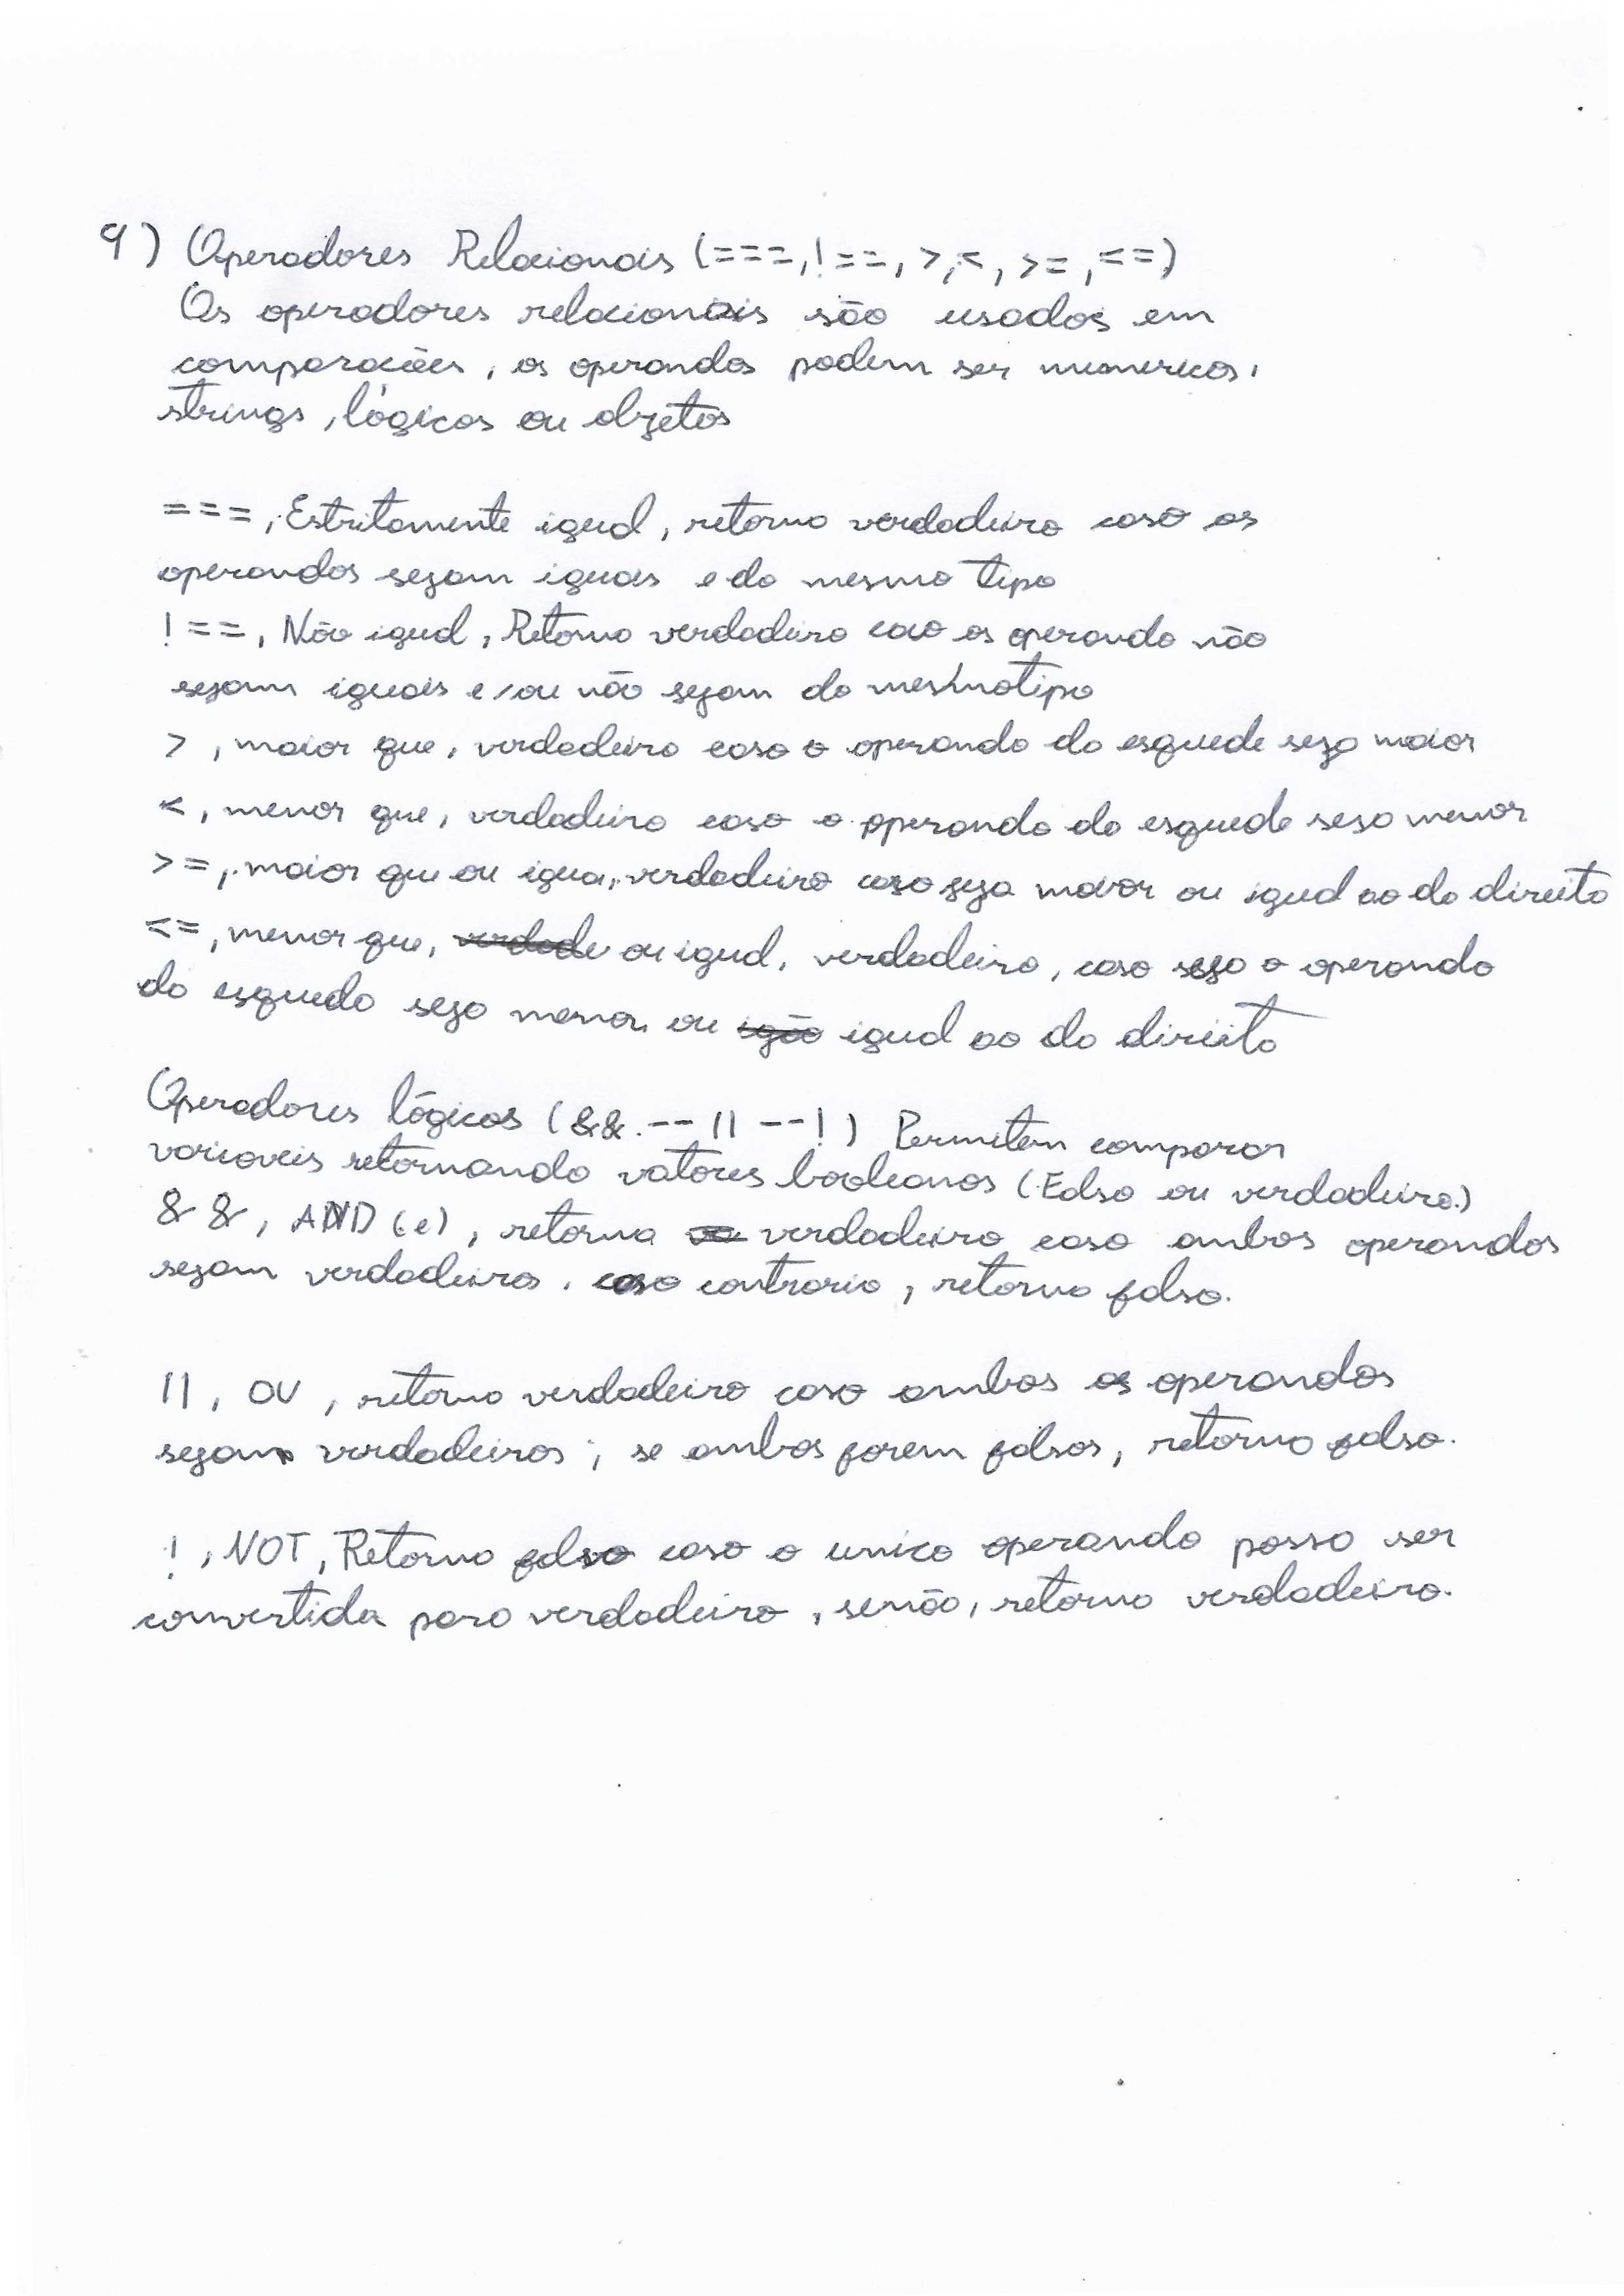 9) Operadores Relacionais (===, !==, >, <, >=, <=)
Os operadores relacionais são usados em
comparações, os operandos podem ser numericos,
strings, lógicos ou objetos
===, Estritamente igual, retorna verdadeiro caso os
operandos sejam iguais e do mesmo tipo
!==, Não igual, Retorna verdadeiro caso os operando não
sejam iguais e/ou não sejam do mesmo tipo
>, maior que, verdadeiro caso o operando da esquede seja maior
<, menor que, verdadeiro caso o operando da esquede seja menor
>=, maior que ou igua, verdadeiro caso seja maior ou igual ao da direita
<=, menor que, ou igual, verdadeiro, caso seja o operando
da esqueda seja menor ou igual ao da direita
Operadores lógicos (&& -- || -- !) Permitem comparar
variaveis retornando valores booleanos (Falso ou verdadeiro.)
&&, AND (e), retorna verdadeiro caso ambos operandos
sejam verdadeiros, caso contrario, retorna falso.
||, OU, retorna verdadeiro caso ambos os operandos
sejam verdadeiros; se ambos forem falsos, retorna falso.
!, NOT, Retorna falso caso o unico operando possa ser
convertida para verdadeiro, senão, retorna verdadeiro.